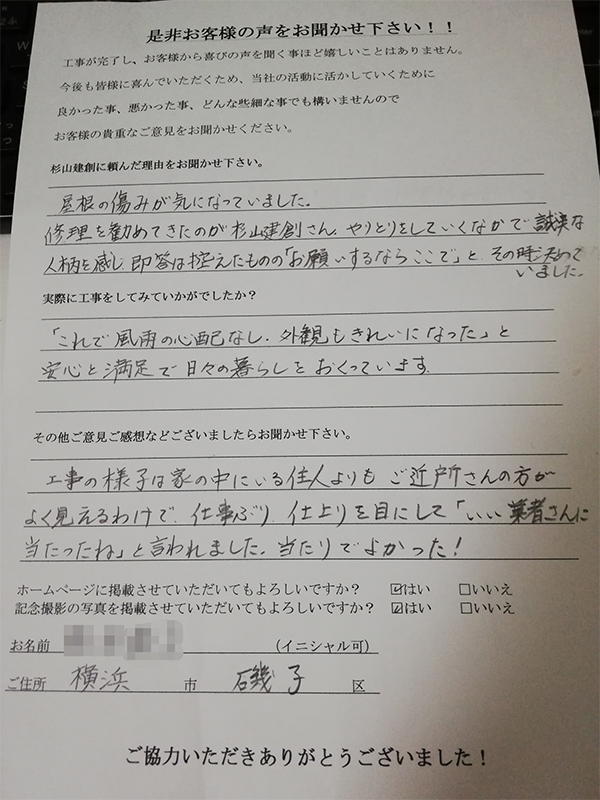 是非お客様の声をお聞かせ下さい！！
工事が完了し、お客様から喜びの声を聞く事ほど嬉しいことはありません。
今後も皆様に喜んでいただくため、当社の活動に活かしていくために
良かった事、悪かった事、どんな些細な事でも構いませんので
お客様の貴重なご意見をお聞かせください。
杉山建創に頼んだ理由をお聞かせ下さい。
屋根の傷みが気になっていました。
修理を勧めてきたのが杉山建創さん。やりとりをしていくなかで誠実な
人柄を感じ、即答は控えたものの「お願いするならここで」と、その時決めて
いました。
実際に工事をしてみていかがでしたか？
「これで風雨の心配なし、外観もきれいになった」と
安心と満足で日々の暮らしをおくっています。
その他ご意見ご感想などございましたらお聞かせ下さい。
工事の様子は家の中にいる住人よりもご近所さんの方が
よく見えるわけで、仕事ぶり、仕上りを目にして「いい業者さんに
当たったね」と言われました。当たりでよかった！
ホームページに掲載させていただいてもよろしいですか？ ☑はい □いいえ
記念撮影の写真を掲載させていただいてもよろしいですか？ ☑はい □いいえ
お名前 (イニシャル可)
ご住所 横浜 市 磯子 区
ご協力いただきありがとうございました！